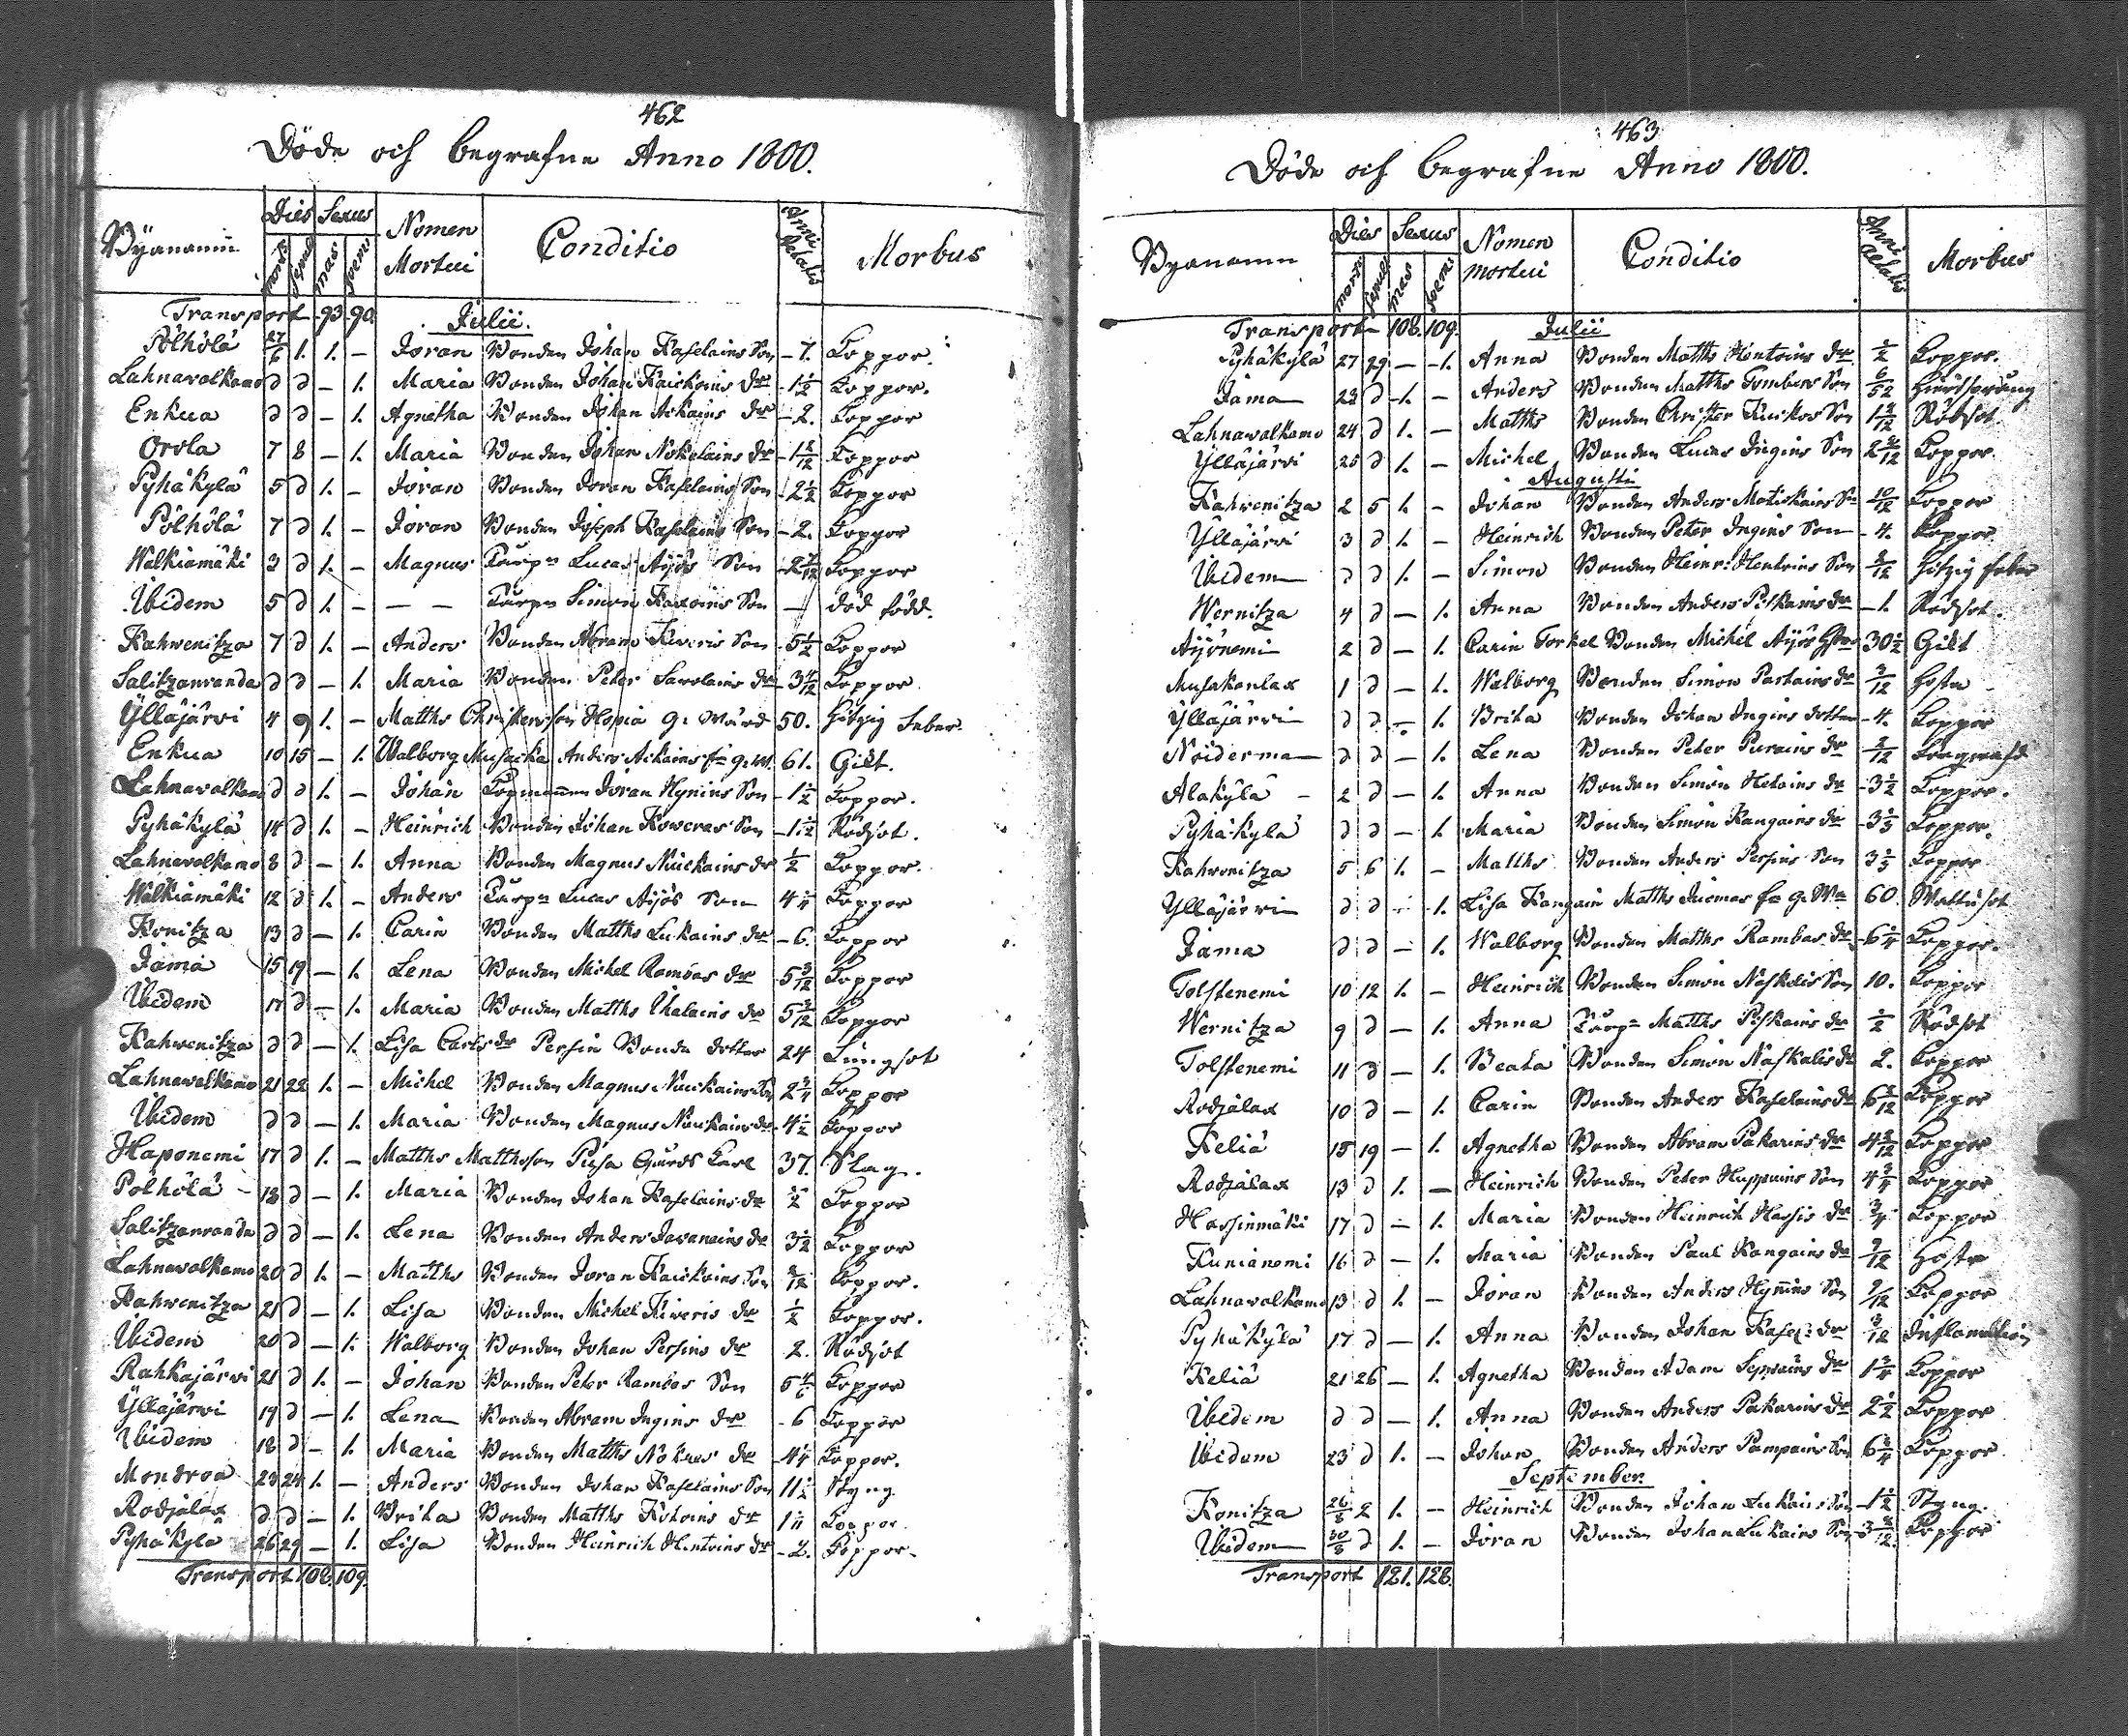 462
Döde och begrafne Anno 1800.
Byanamn Dies Sexus Nomen Mortui Conditio Anni Aetatis Morbus
mortis sepult mas foem
Transport 93. 90. Julii.
Pölhölä 27/6 1. 1. – Jöran Bonden Johan Kaselains Son – 7. Koppor.
Lahnawalkama d d – 1. Maria Bonden Johan Kaickoins dr – 1 1/2 Koppor.
Enkua d d – 1. Agnetha Bonden Johan Ackains dr – 2. Koppor
Orola 7 8 – 1. Maria Bonden Johan Nokelains dr – Koppor
Pyhäkylä 5 d 1. – Jöran Bonden Jöran Kaselains Son – 2 1/2 Koppor
Pölhölä 7 d 1. – Jöran Bonden Joseph Kaselains Son – 2. Koppor
Walkiamäki 3 d 1. – Magnus Torpn Lucas Äijös Son Koppor
Ibidem 5 d 1. – – – Torpn Simon Son – död född.
Kahwenitza 7 d 1. – Anders Bonden Abram Kiveris Son – 5 1/2 Koppor
Salitzanranda d d – 1. Maria Bonden Peter Savolains dr – 3 4/12 Koppor
Ylläjärvi 4 9 1. – Matths Christersson Hopia G. 50. Hitzig feber.
Enkua 10 15 – 1. Walborg Musacka Anders Ackains 61. Gikt.
Lahnawalkama d d 1. – Johan Jöran Hynins Son – 1 1/2 Koppor.
Pyhäkylä 14 d 1. – Heinrich Bonden Johan Koweras Son – 1 1/2 Rödsot.
Lahnawalkama 8 d – 1. Anna Bonden Magnus Nuckains dr 1/2 Koppor.
Walkiamäki 12 d 1. – Anders Torpn Lucas Äijös Son 4 1/4 Koppor
Konitza 13 d – 1. Carin Bonden Matths Lukains dr – 6. Koppor
Jama 15 19 – 1. Lena Bonden Michel Rambas dr 5 3/12 Koppor
Ibidem 17 d – 1. Maria Bonden Matths Ihalains dr 5 3/12 Koppor
Kahwenitza d d – 1. Lisa Carlsdr Persin Bonde dotter 24 Lungsot
Lahnawalkama 21 22 1. – Michel Bonden Magnus Nuckains Son 2 3/4 Koppor
Ibidem d d – 1. Maria Bonden Magnus Nuckains dr – 4 1/2 Koppor
Haponemi 17 d 1. – Matths Matthsson Pusa Gårds Karl 37. Slag.
Pölhölä – 18 d – 1. Maria Bonden Johan Kaselains dr 1/2 Koppor
Salitzanranda d d – 1. Lena Bonden Anders Javanains dr 3 1/2 Koppor
Lahnawalkama 20 d 1. – Matths Bonden Jöran Kaickoins Son Koppor.
Kahwenitza 21 d – 1. Lisa Bonden Michel Kiveris dr 1/2 Koppor.
Ibidem 20 d – 1. Walborg Bonden Johan Persins dr 2. Rödsot
Rahkajärvi 21 d 1. – Johan Bonden Peter Rambas Son Koppor
Ylläjärvi 19 d – 1. Lena Bonden Abram Ingins dr – 6 Koppor
Ibidem 18 d – 1. Maria Bonden Matths Nokres dr – 4 1/4 Koppor.
Mondroa 23 24 1. – Anders Bonden Johan Kaselains Son 11 1/2 Styng.
Rodjälax d d – 1. Brita Bonden Matths dr Koppor.
Pyhäkylä 26 29 – 1. Lisa Bonden Heinrich Hentoins dr – 2. Koppor.
Transport 108. 109.
463
Döde och begrafne Anno 1800.
Byanamn Dies Sexus Nomen mortui Conditio Anni Aetatis Morbus
mortis sepult mas foem.
Transport 108. 109. Julii
Pyhäkylä 27 29 – 1. Anna Bonden Matths Hentoins dr 1/2 Koppor.
Jama 23 d 1. – Anders Bonden Matths Tombers Son 6/52
Lahnawalkama 24 d 1. – Matths Bonden Christer Kuickos Son Rödsot.
Ylläjärvi 25 d 1. – Michel Bonden Lucas Ingins Son Koppor.
Augusti
Kahwenitza 2 5 1. – Johan Bonden Anders Matiskains Sn 10/12 Koppor
Ylläjärvi 3 d 1. – Heinrich Bonden Peter Ingins Son – 4. Koppor.
Ibidem d d 1. – Simon Bonden Heinr: Hentoins Son Hitzig feber
Wernitza 4 d – 1. Anna Bonden Anders Piskains dr – 1. Rödsot.
Äijönemi 2 d – 1. Carin Torkel Bonden Michel Äijös 30 1/2 Gikt
Musakanlax 1 d – 1. Walborg Bonden Simon Partains dr 3/12 Hosta
Ylläjärvi d d – 1. Brita Bonden Johan Ingins dotter – 4. Koppor
Noiderma d d – 1. Lena Bonden Peter Purains dr
Alakylä – 2 d – 1. Anna Bonden Simon Helains dr – 3 1/2 Koppor.
Pyhäkylä d d – 1. Maria Bonden Simon Kangains dr – 3 1/3 Koppor.
Kahwenitza 5 6 1. – Matths Bonden Anders Persins Son 3 1/3 Koppor
Ylläjärvi d d – 1. Lisa Kangain Matths 60. Wattusot
Jama d d – 1. Walborg Bonden Matths Rambas dr – 6 1/4 Koppor.
Tolstenemi 10 12 1. – Heinrich Bonden Simon Naskalis Son 10. Koppor
Wernitza 9 d – 1. Anna Torpn Matths Piskains dr 1/2 Rödsot
Tolstenemi 11 d – 1. Beata Bonden Simon Naskalis dr 2. Koppor
Rodjälax 10 d – 1. Carin Bonden Anders Kaselains dr Koppor
Keliä 15 19 – 1. Agnetha Bonden Abram Pakarins dr Koppor
Rodjälax 13 d 1. – Heinrich Bonden Peter Huppuins Son 4 3/4 Koppor
Hassinmäki 17 d – 1. Maria Bonden Heinrich Hassis dr 3/4 Koppor
Kunianemi 16 d – 1. Maria Bonden Paul Kangains dr Hosta
Lahnawalkama 13 d 1. – Jöran Bonden Anders Hynnins Son 9/12 Koppor
Pyhäkylä 17 d – 1. Anna Bonden Johan Kasel: dr 3/12 Inflamation
Keliä 21 26 – 1. Agnetha Bonden Adam Seppains dr 1 3/4 Koppor
Ibidem d d – 1. Anna Bonden Anders Pakarins dr 2 1/2 Koppor
Ibidem 23 d 1. – Johan Bonden Anders Pampains Son 6 3/4 Koppor
September.
Konitza 26/8 2 1. – Heinrich Bonden Johan Lukains Son – 1 1/2 Styng.
Ibidem 30/8 d 1. – Jöran Bonden Johan Lukains Son Koppor
Transport 121. 128.